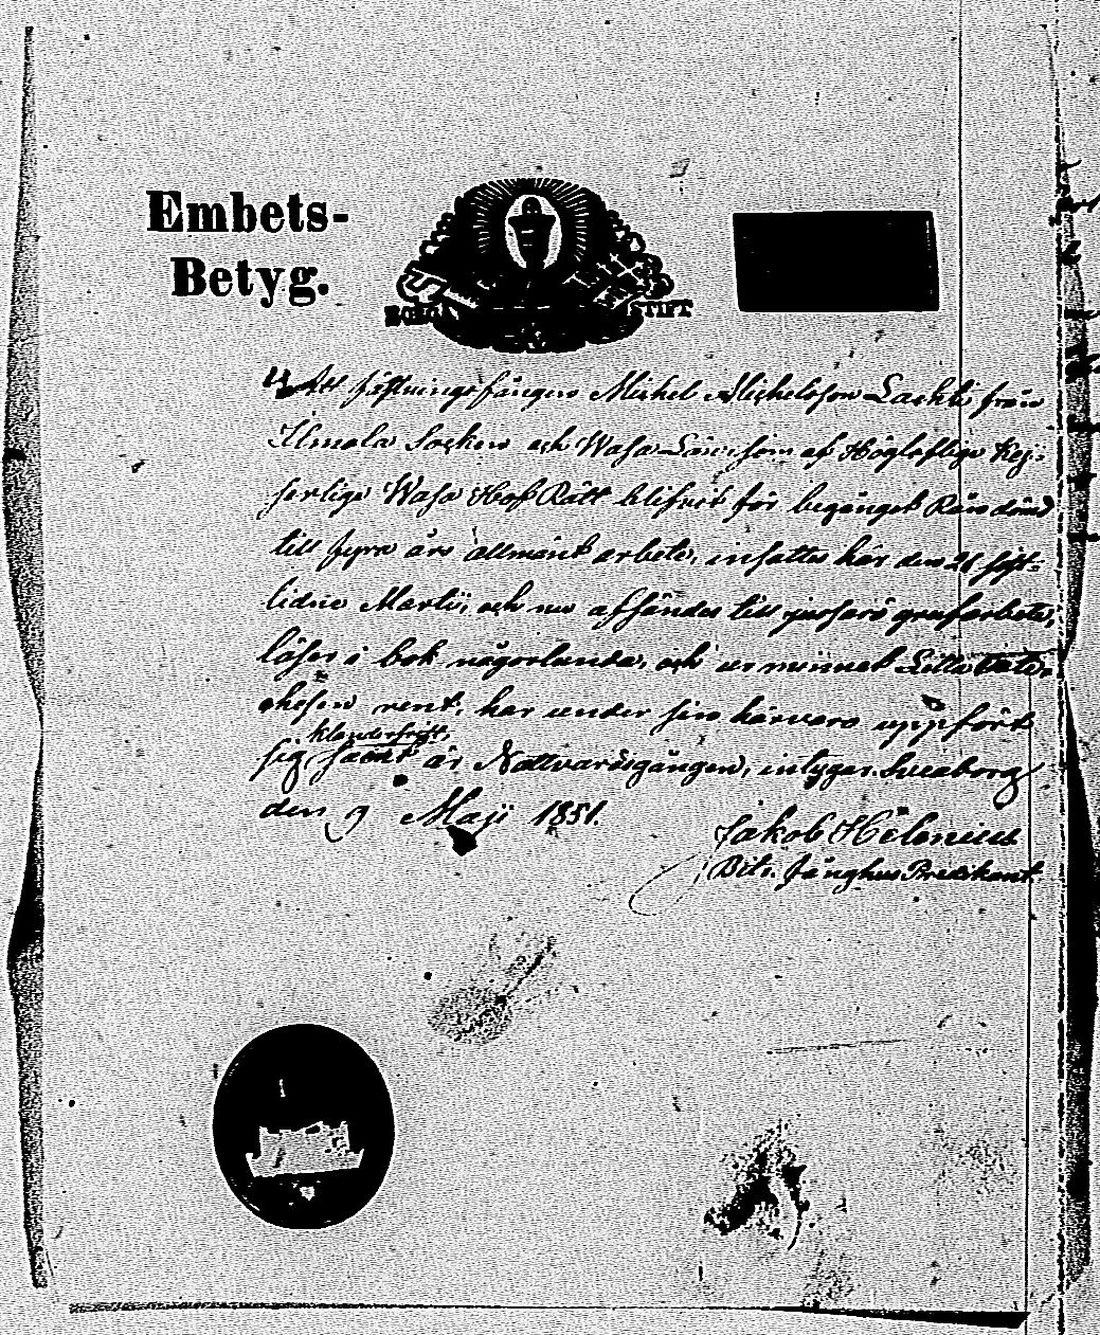 Embets-
Betyg.
BORGÅ STIFT
Att fästningsfången Mickel Mickelsson Lachti från
Ilmola Socken och Wasa Län, som af Högloflige Kej-
serlige Wasa Hof Rätt blifvit för begånget Rån dömd
till fyra års allmänt arbete, insattes här den 21 sist-
lidne Martii, och nu afsändes till jussarö grufarbete,
läser i bok någorlunda, och ur minnet Lilla Cate-
chesen rent, har under sin härvaro uppfört
klanderfritt,
sig samt är Nattvardsgången, intygar. Sveaborg
den 9 Maji 1851.
Jakob Helenius
Bitr. Fånghus Predikant.